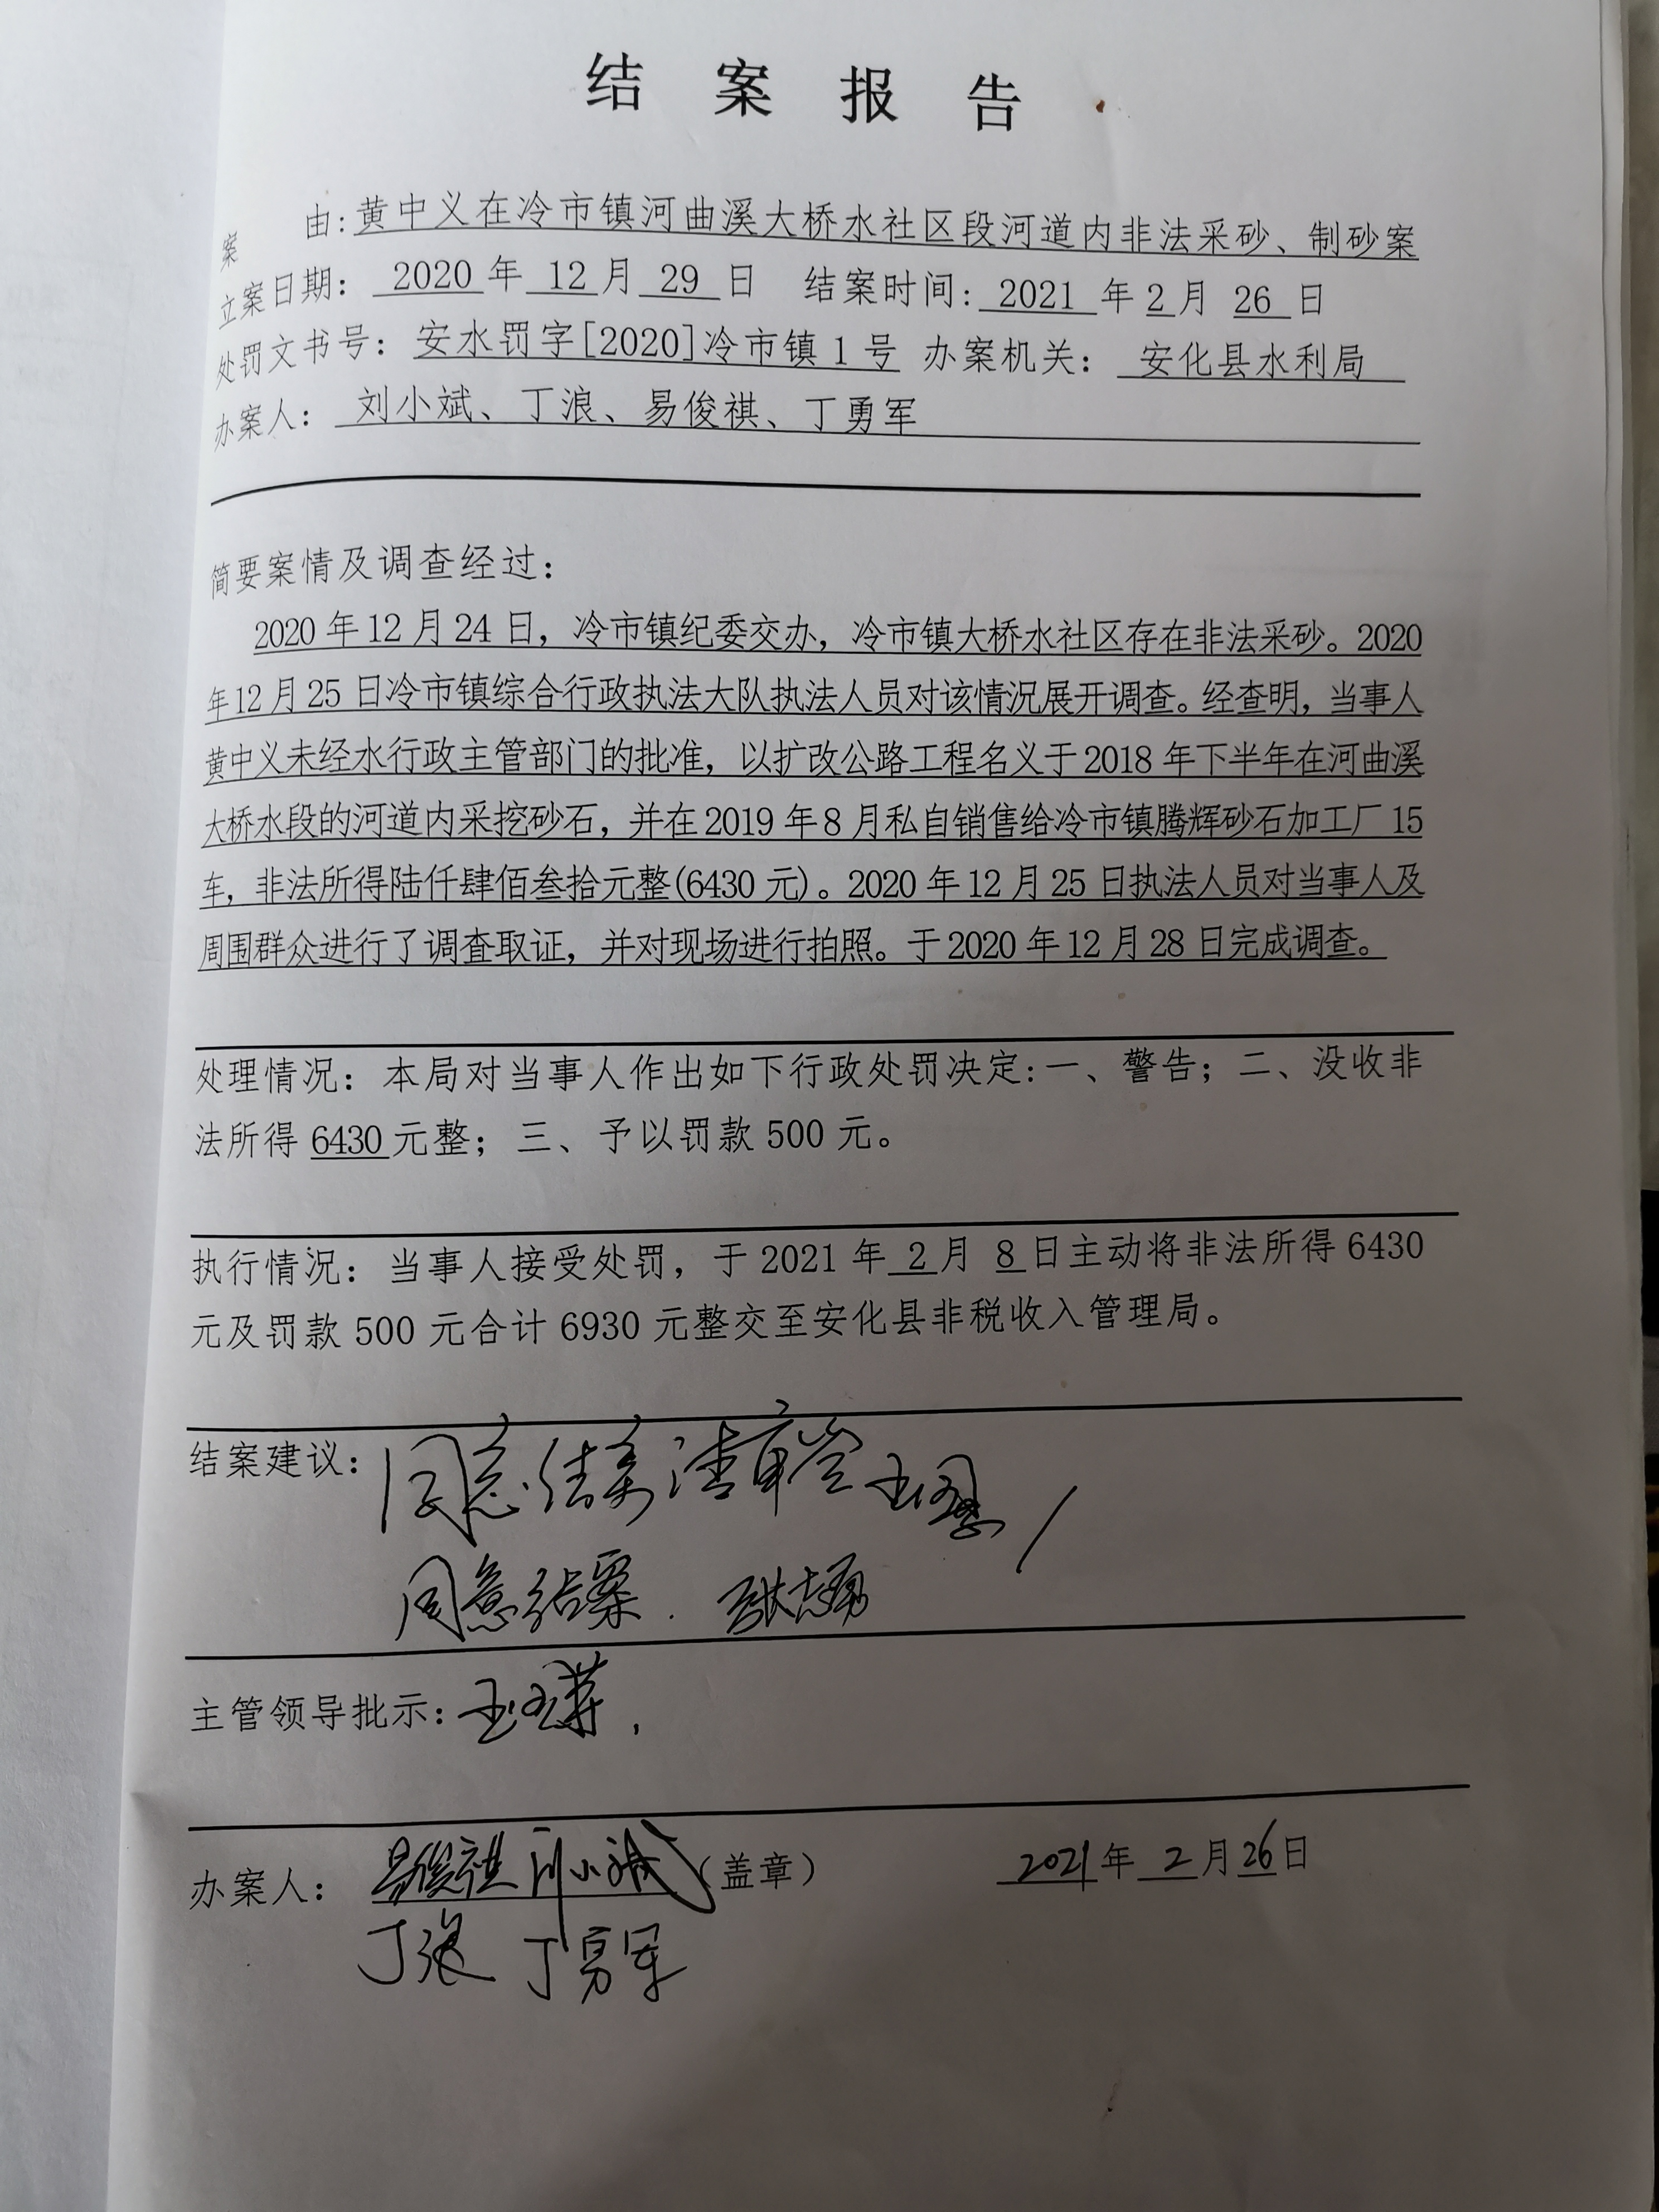 结案报告
案由:黄中义在冷市镇河曲溪大桥水社区段河道内非法采砂、制砂案
立案日期: 2020 年 12 月 29 日 结案时间: 2021 年 2 月 26 日
处罚文书号: 安水罚字[2020]冷市镇 1 号 办案机关: 安化县水利局
办案人: 刘小斌、丁浪、易俊祺、丁勇军
简要案情及调查经过:
2020 年 12 月 24 日，冷市镇纪委交办，冷市镇大桥水社区存在非法采砂。2020
年12 月 25 日冷市镇综合行政执法大队执法人员对该情况展开调查。经查明，当事人
黄中义未经水行政主管部门的批准，以扩改公路工程名义于 2018 年下半年在河曲溪
大桥水段的河道内采挖砂石，并在 2019 年 8 月私自销售给冷市镇腾辉砂石加工厂 15
车，非法所得陆仟肆佰叁拾元整(6430 元)。2020 年 12 月 25 日执法人员对当事人及
周围群众进行了调查取证，并对现场进行拍照。于 2020 年 12 月 28 日完成调查。
处理情况: 本局对当事人作出如下行政处罚决定:一、警告；二、没收非
法所得 6430 元整；三、予以罚款 500 元。
执行情况: 当事人接受处罚，于 2021 年 2 月 8 日主动将非法所得 6430
元及罚款 500 元合计 6930 元整交至安化县非税收入管理局。
结案建议: 同意结案 请审签
同意结案. 张志勇
主管领导批示:
办案人: 易俊祺 刘小斌 (盖章) 2021 年 2 月 26 日
丁浪 丁勇军